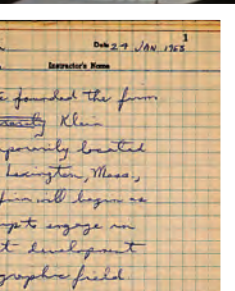 1
Date 24 JAN 1965
Instructor's Name
founded the firm
Klein
porarily located
Lexington, Mass.,
firm will begin as
mpt to engage in
t development
graphic field.